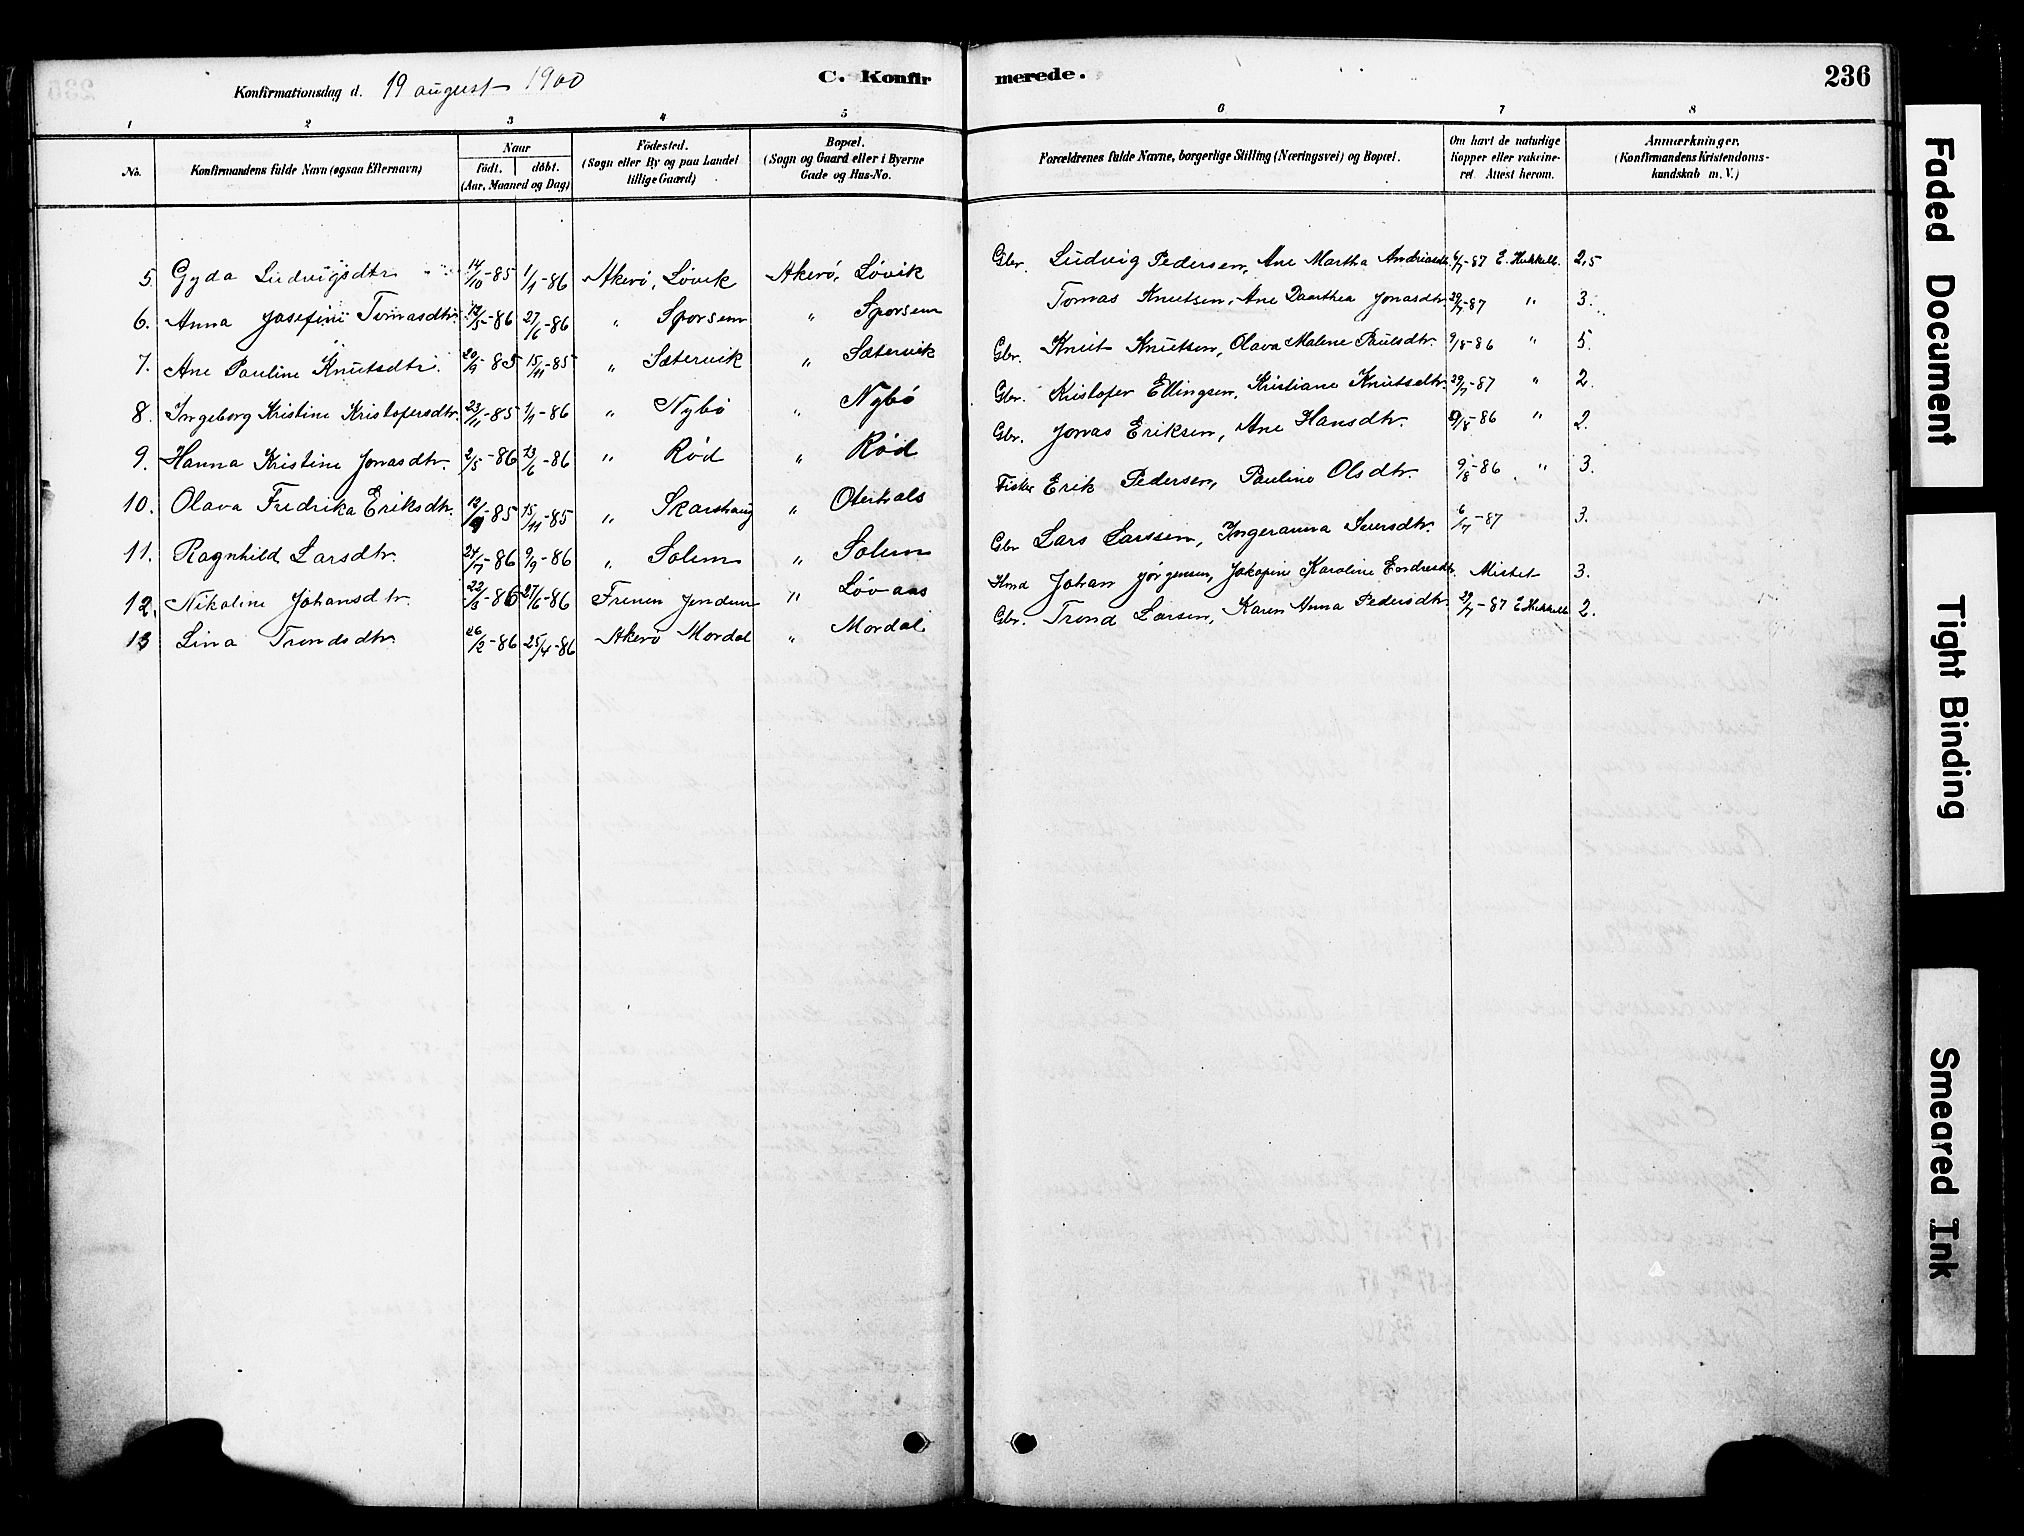 Konfirmationsdag d. 19 august 1900 C. Konfir merede. 236
1 2 3 4 5 6 7 8
No. Konfirmandens fulde Navn (ogsaa Efternavn) Naar Födt. döbt. (Aar, Maaned og Dag) Födested. (Sogn eller By og paa Landet tillige Gaard) Bopæl. (Sogn og Gaard eller i Byerne Gade og Hus-No. Forældrenes fulde Navne, borgerlige Stilling (Næringsvei) og Bopæl. Om havt de naturlige Kopper eller vakcineret. Attest herom. Anmærkninger. (Konfirmandens Kristendomskundskab m. V.)
5. Gyda Ludvigsdtr. 14/10-85 1/1-86 Akerö, Lövik Akerö, Lövik Gbr. Ludvig Pedersen, Ane Martha 6/7-87 2,5
6. Anna Josefine Tomasdtr. 12/5-86 27/6-86 " Sporsem " Sporsem Tomas Knutsen, Ane Daarthea Jonasdtr. 29/7-87 " 3.
7. Ane Pauline Knutsdtr. 20/9-85 15/11-85 " Sætervik " Sætervik Gbr. Knut Knutsen, Olava Malene Paulsdtr. 9/8-86 " 5.
8. Ingeborg Kristine Kristofersdtr. 23/11-85 1/1-86 " Nybö " Nybö Gbr. Kristofer Ellingsen, Kristiane Knutsdtr. 29/7-87 " 2.
9. Hanna Kristine Jonasdtr. 2/5-86 13/6-86 " Röd " Röd Gbr. Jonas Eriksen, Ane Hansdtr. 9/8-86 " 2.
10. Olava Fredrika Eriksdtr. 12/9-85 15/11-85 " Skarshaug " Oterhals Fisker Erik Pedersen, Pauline Olsdtr. 9/8-86 " 3.
11. Ragnhild Larsdtr. 24/7-86 9/9-86 " Solem " Solem Gbr Lars Larssen, Ingeranna Iversdtr. 6/7-87 3.
12. Nikoline Johansdtr. 22/3-86 27/6-86 Frenen Jendem " Lövaas Hmd Johan Jörgensen, Jakopine Karoline Endresdtr. Mistet 3.
13 Lina Trondsdtr. 26/2-86 25/4-86 Akerö Mordal " Mordal Gbr. Trond Larsen, Karen Anna Pedersdtr. 29/7-87 2.
Faded Document
Tight Binding
Smeared Ink